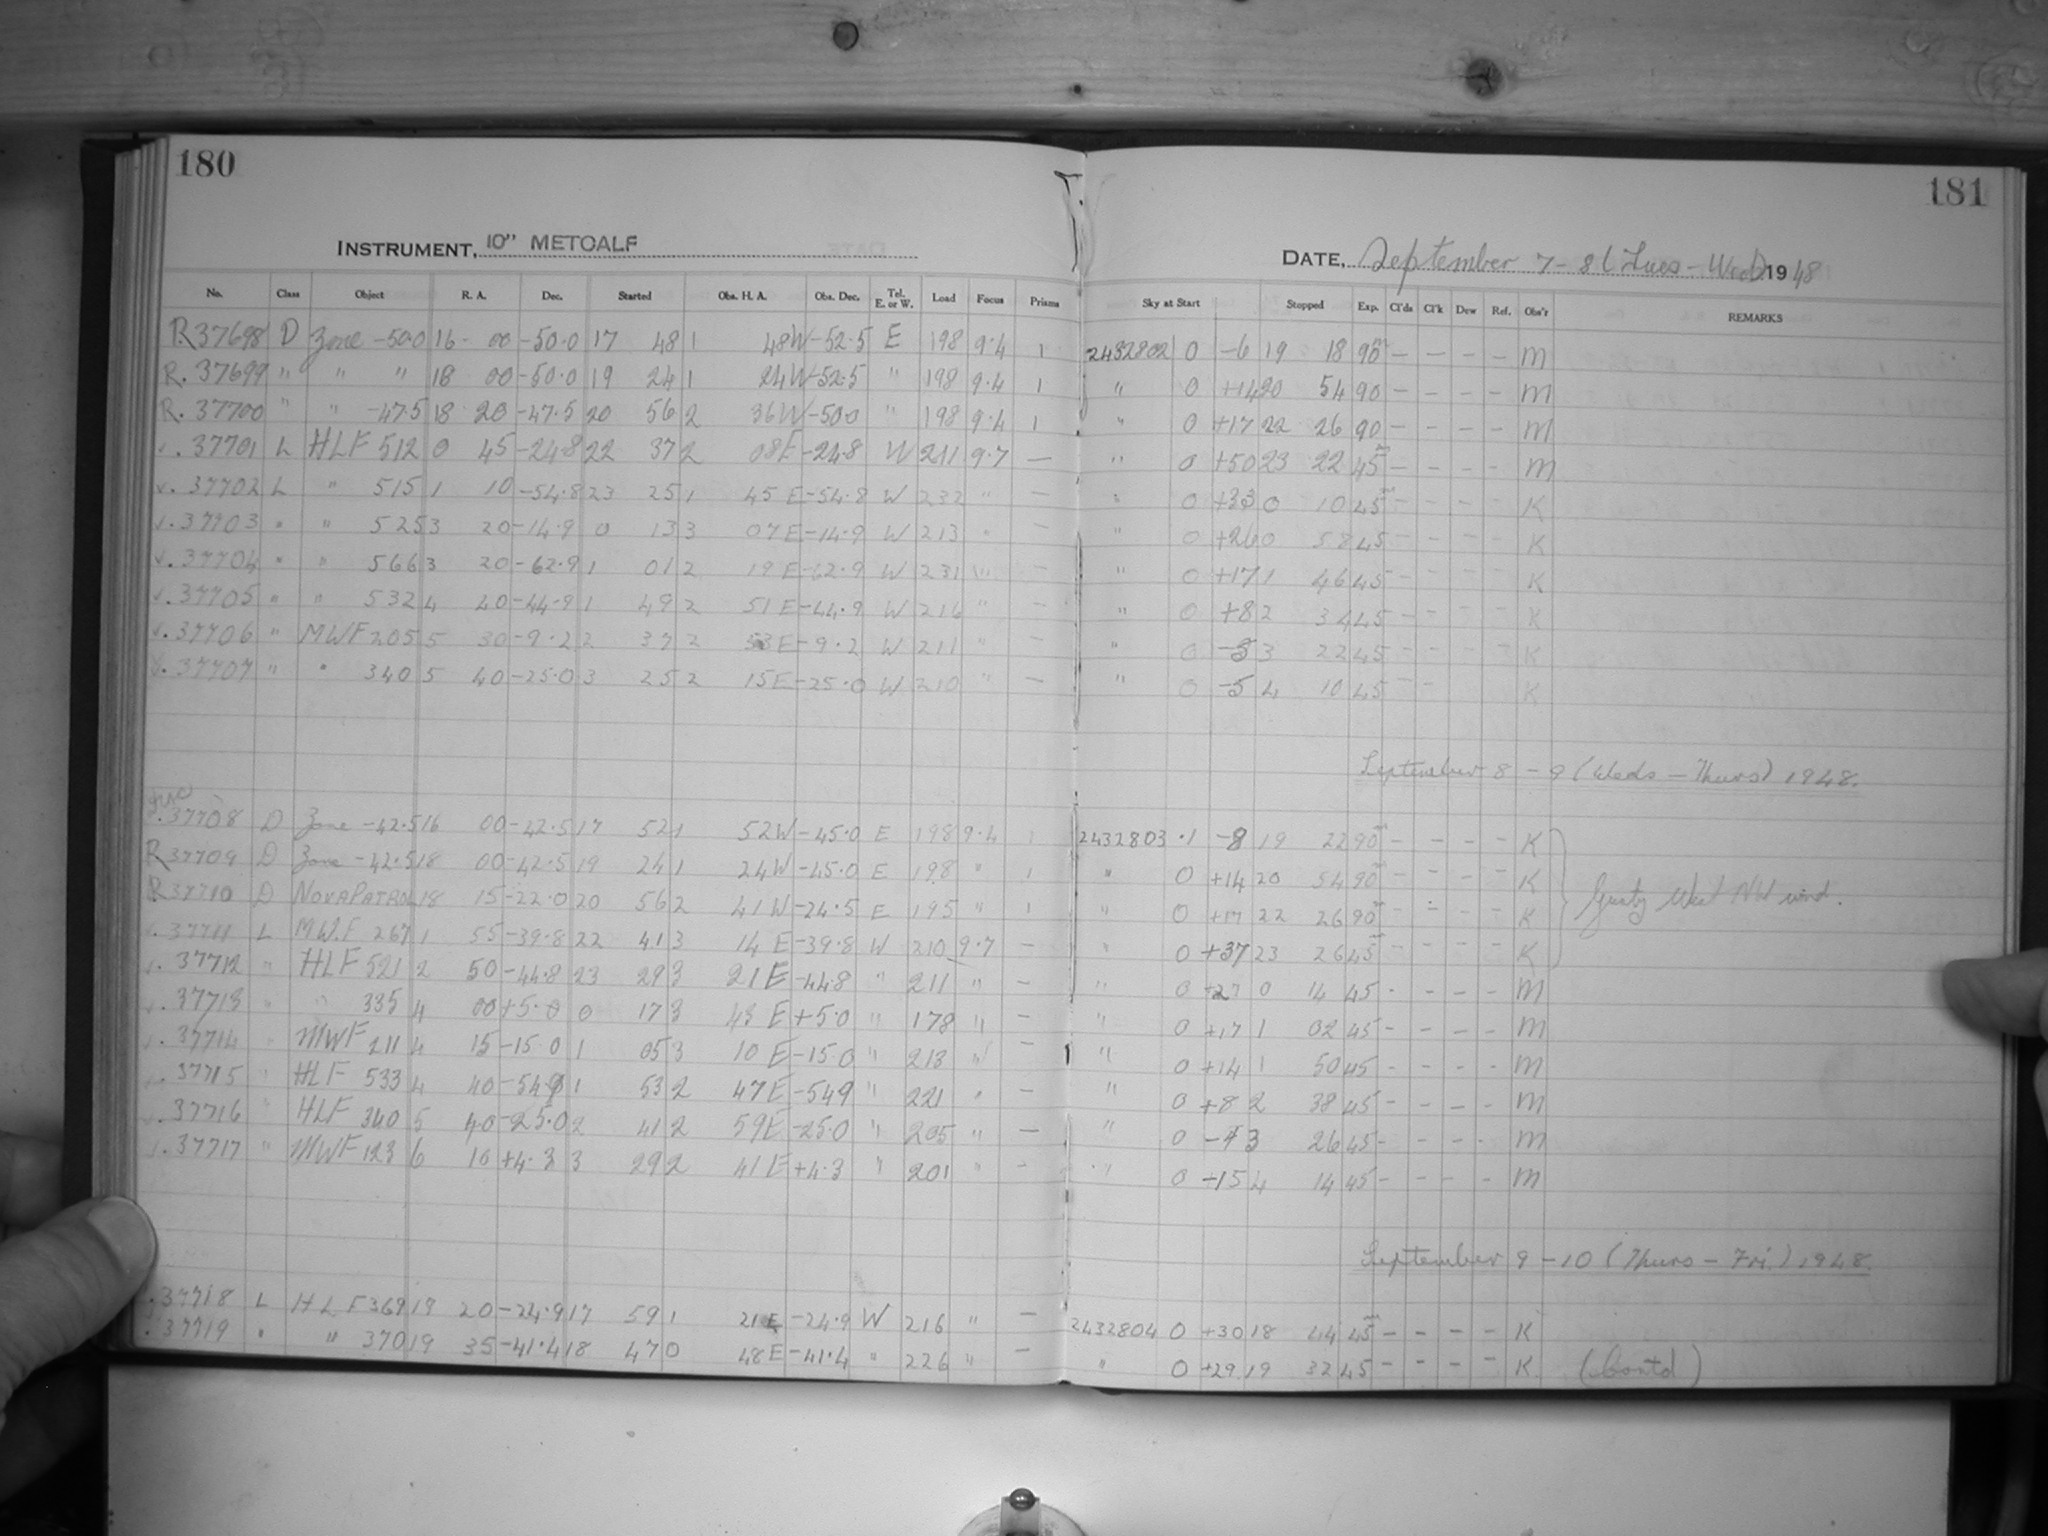 180
181
INSTRUMENT, 10" METCALF
DATE, September 7-8 (Tues - Wed) 1948
No. Class Object R. A. Dec. Started Obs. H. A. Obs. Dec. Tel. E. or W. Load Focus Prisms Sky at Start Stopped Exp. Cl'ds Cl'k Dew Ref. Obs'r REMARKS
R.37698 D Zone -50.0 16 00 -50.0 17 48 1 48W -52.5 E 198 9.4 1 2432802 0 -6 19 18 90m - - - - M
R. 37699 " " " 18 00 -50.0 19 24 1 24W -52.5 " 198 9.4 1 " 0 +14 20 54 90 - - - - M
R. 37700 " " -47.5 18 20 -47.5 20 56 2 36W -50.0 " 198 9.4 1 " 0 +17 22 26 90 - - - - M
. 37701 L HLF 512 0 45 -24.8 22 37 2 08E -24.8 W 211 9.7 — " 0 +50 23 22 45m - - - - M
. 37702 L " 515 1 10 -54.8 23 25 1 45 E -54.8 W 232 " — " 0 +33 0 10 45m - - - - K
. 37703 " " 525 3 20 -14.9 0 13 3 07 E -14.9 W 213 " — " 0 +26 0 58 45 - - - - K
. 37704 " " 566 3 20 -62.9 1 01 2 19 E -62.9 W 231 " — " 0 +17 1 46 45 - - - - K
. 37705 " " 532 4 40 -44.9 1 49 2 51 E -44.9 W 216 " — " 0 +8 2 34 45 - - - - K
. 37706 " MWF 205 5 30 -9.2 2 37 2 53 E -9.2 W 211 " — " 0 -3 3 22 45 - - - - K
. 37707 " " 340 5 40 -25.0 3 25 2 15E -25.0 W 210 " — " 0 -5 4 10 45 - - K
September 8 - 9 (Weds - Thurs) 1948.
.37708 D Zone -42.5 16 00 -42.5 17 52 1 52W -45.0 E 198 9.4 1 2432803 .1 -8 19 22 90m - - - - K
R 37709 D Zone -42.5 18 00 -42.5 19 24 1 24W -45.0 E 198 " 1 " 0 +14 20 54 90m - - - - K
R 37710 D NOVA PATROL 18 15 -22.0 20 56 2 41W -24.5 E 195 " 1 " 0 +17 22 26 90m - - - - K Gusty West NW wind.
. 37711 L MW.F 267 1 55 -39.8 22 41 3 14 E -39.8 W 210 9.7 — " 0 +37 23 26 45m - - - - K
. 37712 " HLF 521 2 50 -44.8 23 29 3 21E -44.8 " 211 " — " 0 +27 0 14 45 - - - - M
. 37713 " " 335 4 00 +5.0 0 17 3 43 E +5.0 " 178 " — " 0 +17 1 02 45 - - - - M
. 37714 " MWF 211 4 15 -15.0 1 05 3 10 E -15.0 " 213 " — " 0 +14 1 50 45 - - - - M
. 37715 " HLF 533 4 40 -54.9 1 53 2 47E -549 " 221 " — " 0 +8 2 38 45 - - - - M
. 37716 " HLF 340 5 40 -25.0 2 41 2 59E -25.0 " 205 " — " 0 3 26 45 - - - - M
. 37717 " MWF 123 6 10 +4.3 3 29 2 41 E +4.3 " 201 " — " 0 -15 4 14 45 - - - - M
September 9 - 10 (Thurs - Fri.) 1948.
. 37718 L HLF 369 19 20 -24.9 17 59 1 21E -24.9 W 216 " — 2432804 0 +30 18 44 45m - - - - K
. 37719 " " 370 19 35 -41.4 18 47 0 48E -41.4 " 226 " — " 0 +29 19 32 45 - - - - K. (Contd)